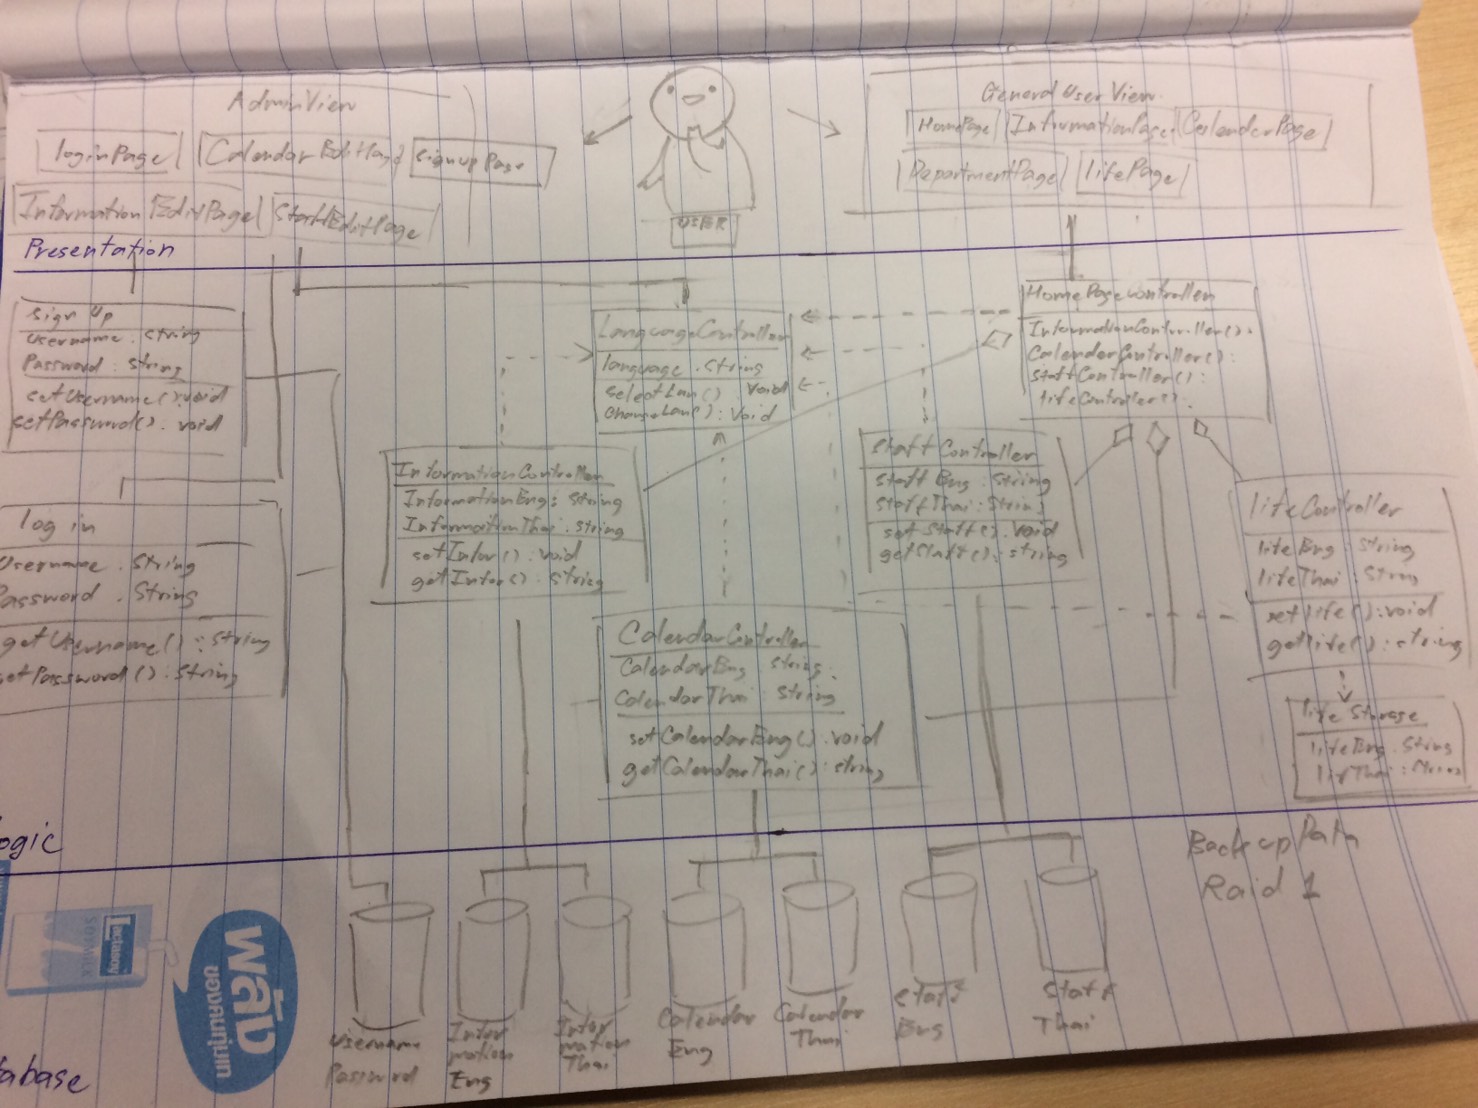 AdminView
loginPage
Calendar EditPage
signupPage
Information EditPage
StaffEditPage
USER
General User View
HomePage
InformationPage
CalenderPage
DepartmentPage
lifePage
Presentation
sign Up
username : string
Password : string
setUsername() : void
setPassword() : void
log in
Username : String
Password : String
getUsername() : String
getPassword() : String
LanguageController
language : String
selectLan() : Void
changeLan() : Void
HomePageController
InformationController() :
CalenderController() :
staffController() :
lifeController() :
InformationController
InformationEng : String
InformationThai : String
setInfor() : void
getInfor() : String
staffController
staffEng : String
staffThai : String
setStaff() : void
getStaff() : string
lifeController
lifeEng : String
lifeThai : String
setLife() : void
getlife() : string
life Storage
lifeEng : String
lifeThai : String
CalendarController
CalendarEng : String
CalendarThai : String
setCalendarEng() : void
getCalendarThai() : string
ogic
Backup Data
Raid 1
username
Password
Infor
mation
Eng
Infor
mation
Thai
Calendar
Eng
Calendar
Thai
staff
Eng
staff
Thai
abase
Lactasoy
SOYMILK
พลัง
ของคนทุกยุค